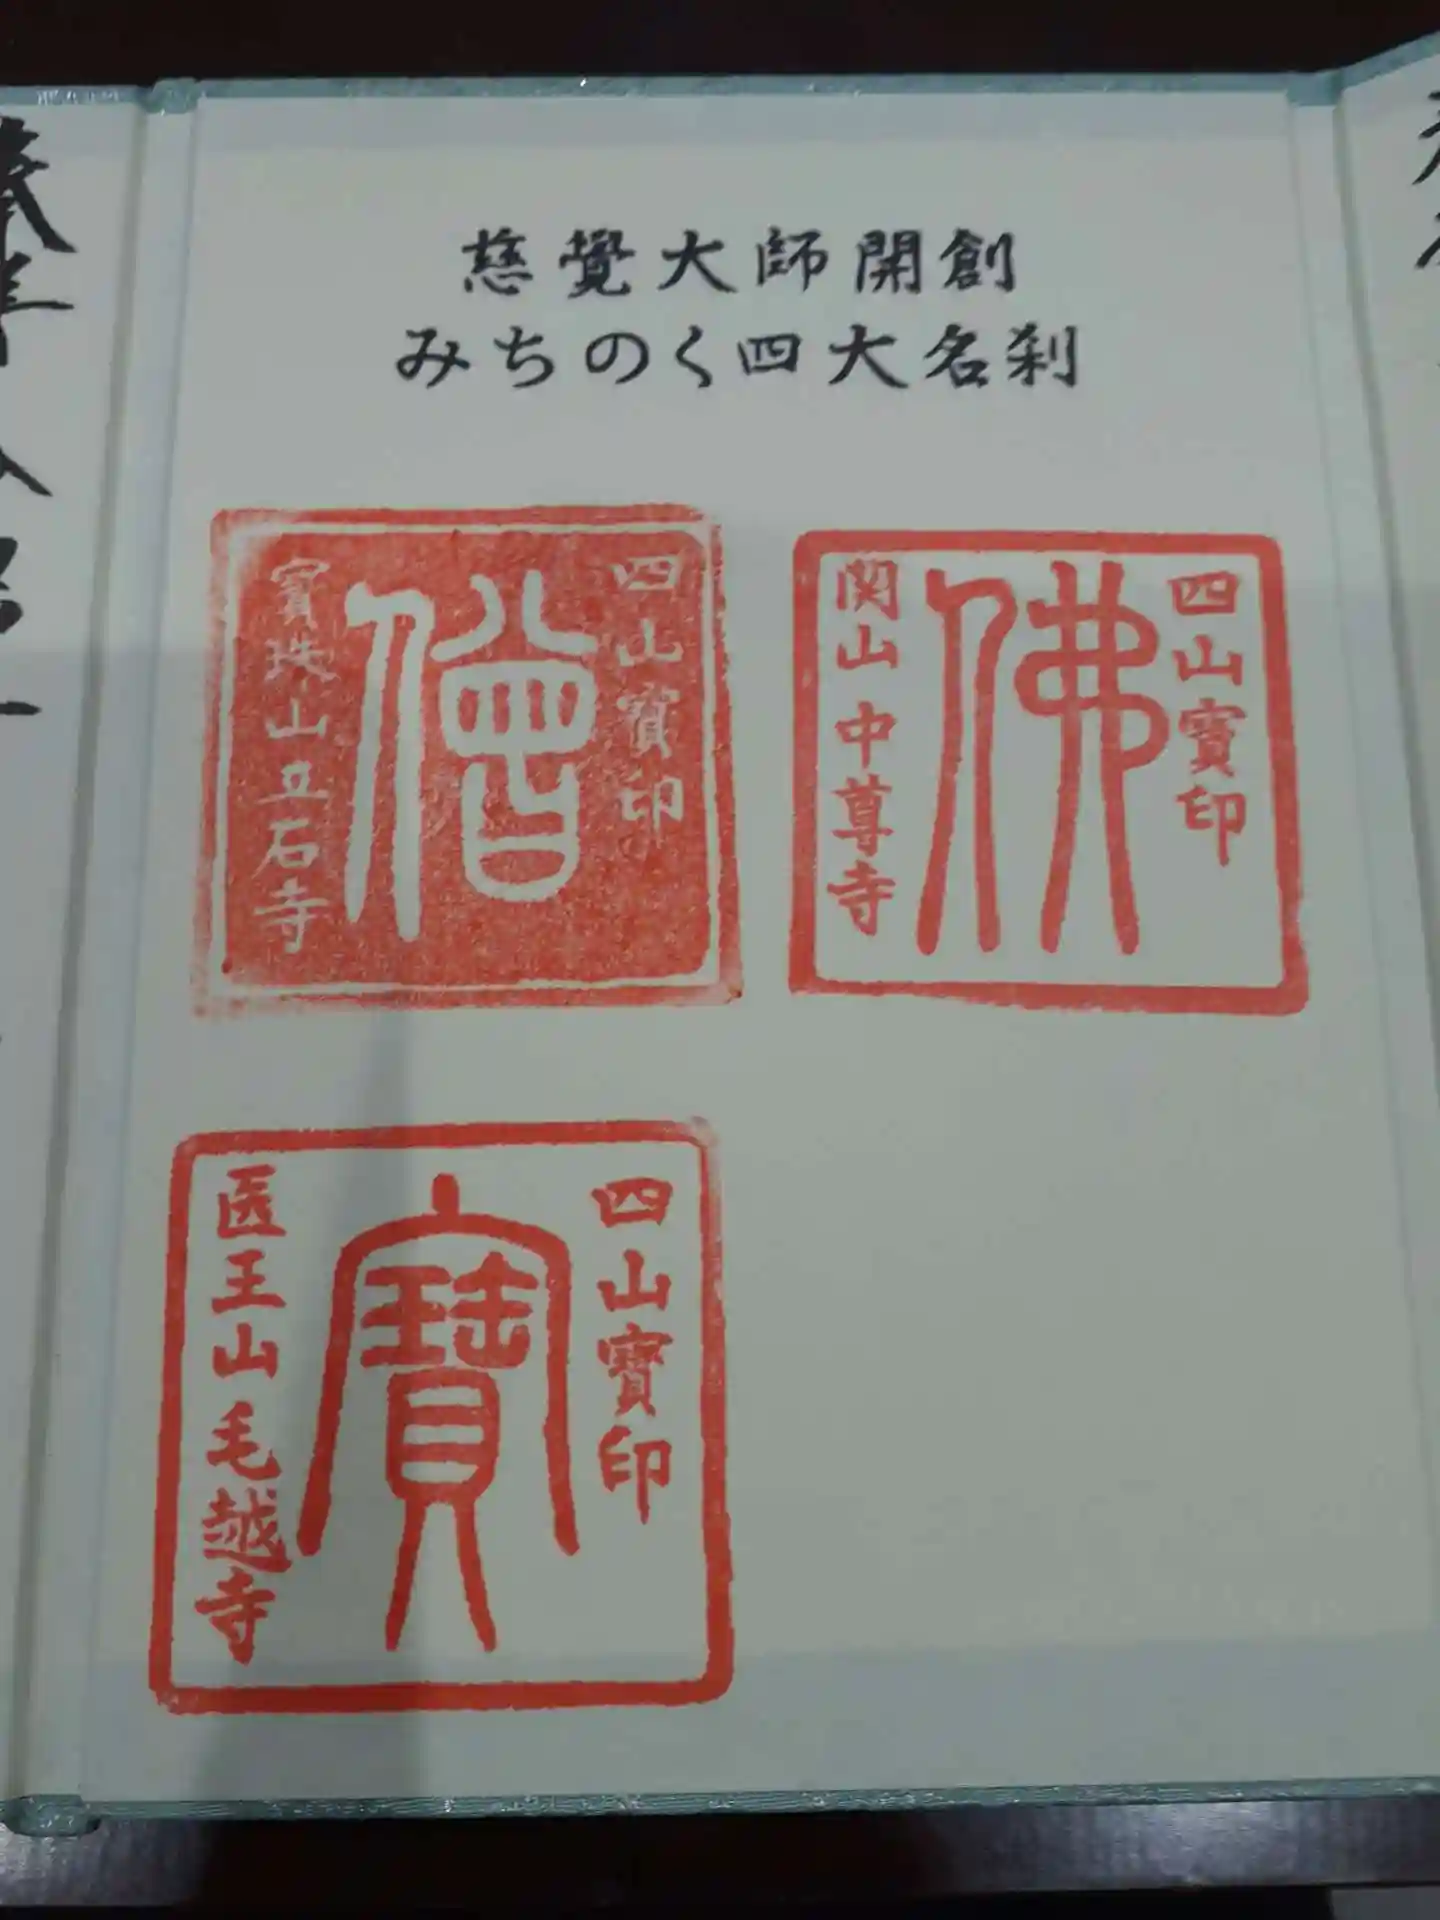 慈覺大師開創
みちのく四大名刹
四山寳印
佛
関山 中尊寺
四山寳印
僧
寳珠山立石寺
四山寳印
寶
医王山 毛越寺
奉拝